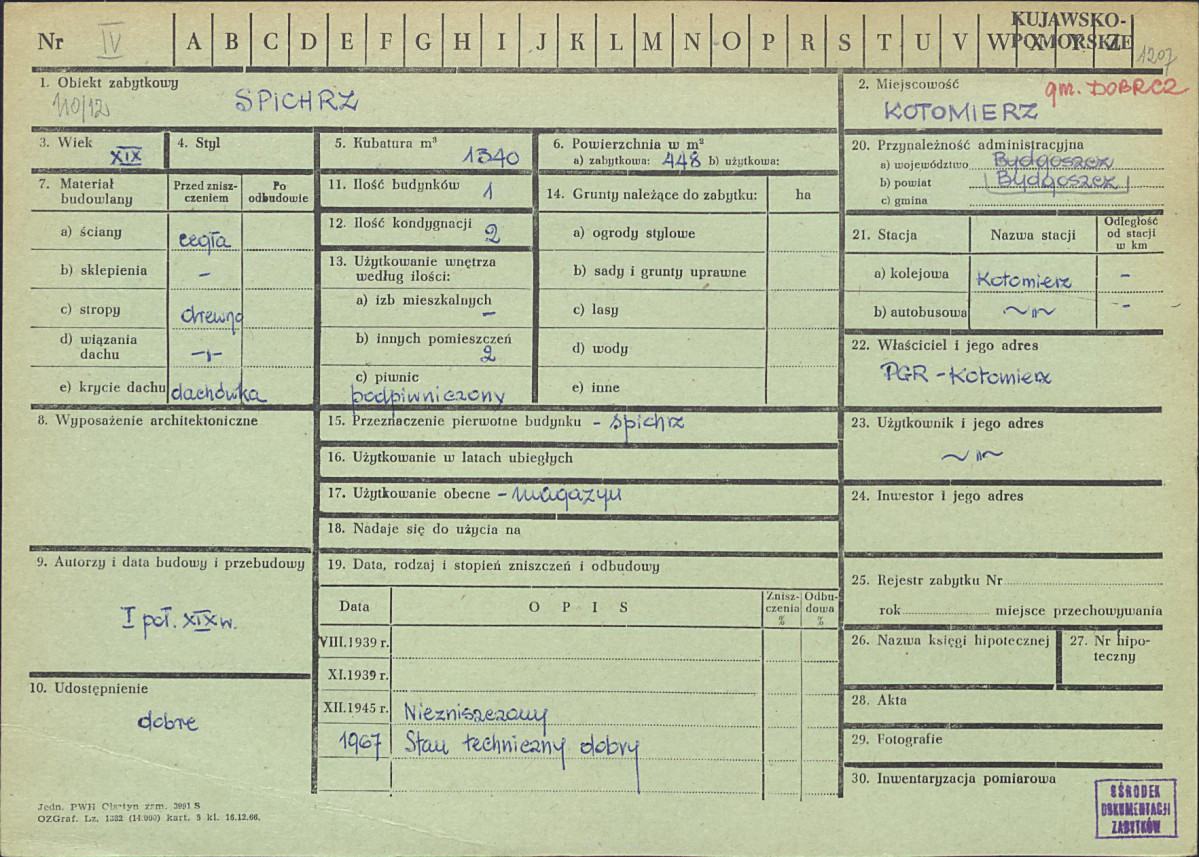 KUJAWSKO-
POMORSKIE
Nr IV A B C D E F G H I J K L M N O P R S T U V W X Y Z
1207
1. Obiekt zabytkowy
110/12
SPICHRZ
2. Miejscowość
gm. DOBRCZ
KOTOMIERZ
3. Wiek
XIX
4. Styl
5. Kubatura m³
1340
6. Powierzchnia w m²
a) zabytkowa: 448 b) użytkowa:
20. Przynależność administracyjna
a) województwo Bydgoszcz
b) powiat Bydgoszcz
c) gmina
7. Materiał budowlany
Przed znisz-
czeniem
Po
odbudowie
a) ściany cegła
b) sklepienia –
c) stropy drewno
d) wiązania
dachu –"–
e) krycie dachu dachówka
11. Ilość budynków
1
12. Ilość kondygnacji
2
13. Użytkowanie wnętrza
według ilości:
a) izb mieszkalnych
–
b) innych pomieszczeń
2
c) piwnic
podpiwniczony
14. Grunty należące do zabytku: ha
a) ogrody stylowe
b) sady i grunty uprawne
c) lasy
d) wody
e) inne
21. Stacja
Nazwa stacji
Odległość
od stacji
w km
a) kolejowa Kotomierz –
b) autobusowa ~"~ –
22. Właściciel i jego adres
PGR - Kotomierz
8. Wyposażenie architektoniczne
15. Przeznaczenie pierwotne budynku - spichrz
16. Użytkowanie w latach ubiegłych
17. Użytkowanie obecne - magazyn
18. Nadaje się do użycia na
23. Użytkownik i jego adres
~"~
24. Inwestor i jego adres
9. Autorzy i data budowy i przebudowy
I poł. XIX w.
19. Data, rodzaj i stopień zniszczeń i odbudowy
Data
O P I S
Znisz-
czenia
%
Odbu-
dowa
%
VIII.1939 r.
XI.1939 r.
XII.1945 r. Niezniszczony
1967 Stan techniczny dobry
25. Rejestr zabytku Nr
rok miejsce przechowywania
26. Nazwa księgi hipotecznej
27. Nr hipo-
teczny
10. Udostępnienie
dobre
28. Akta
29. Fotografie
30. Inwentaryzacja pomiarowa
OŚRODEK
DOKUMENTACJI
ZABYTKÓW
Jedn. PWH Olsztyn zam. 3991 S
OZGraf. Lz. 1382 (14.000) kart. 5 kl. 16.12.66.